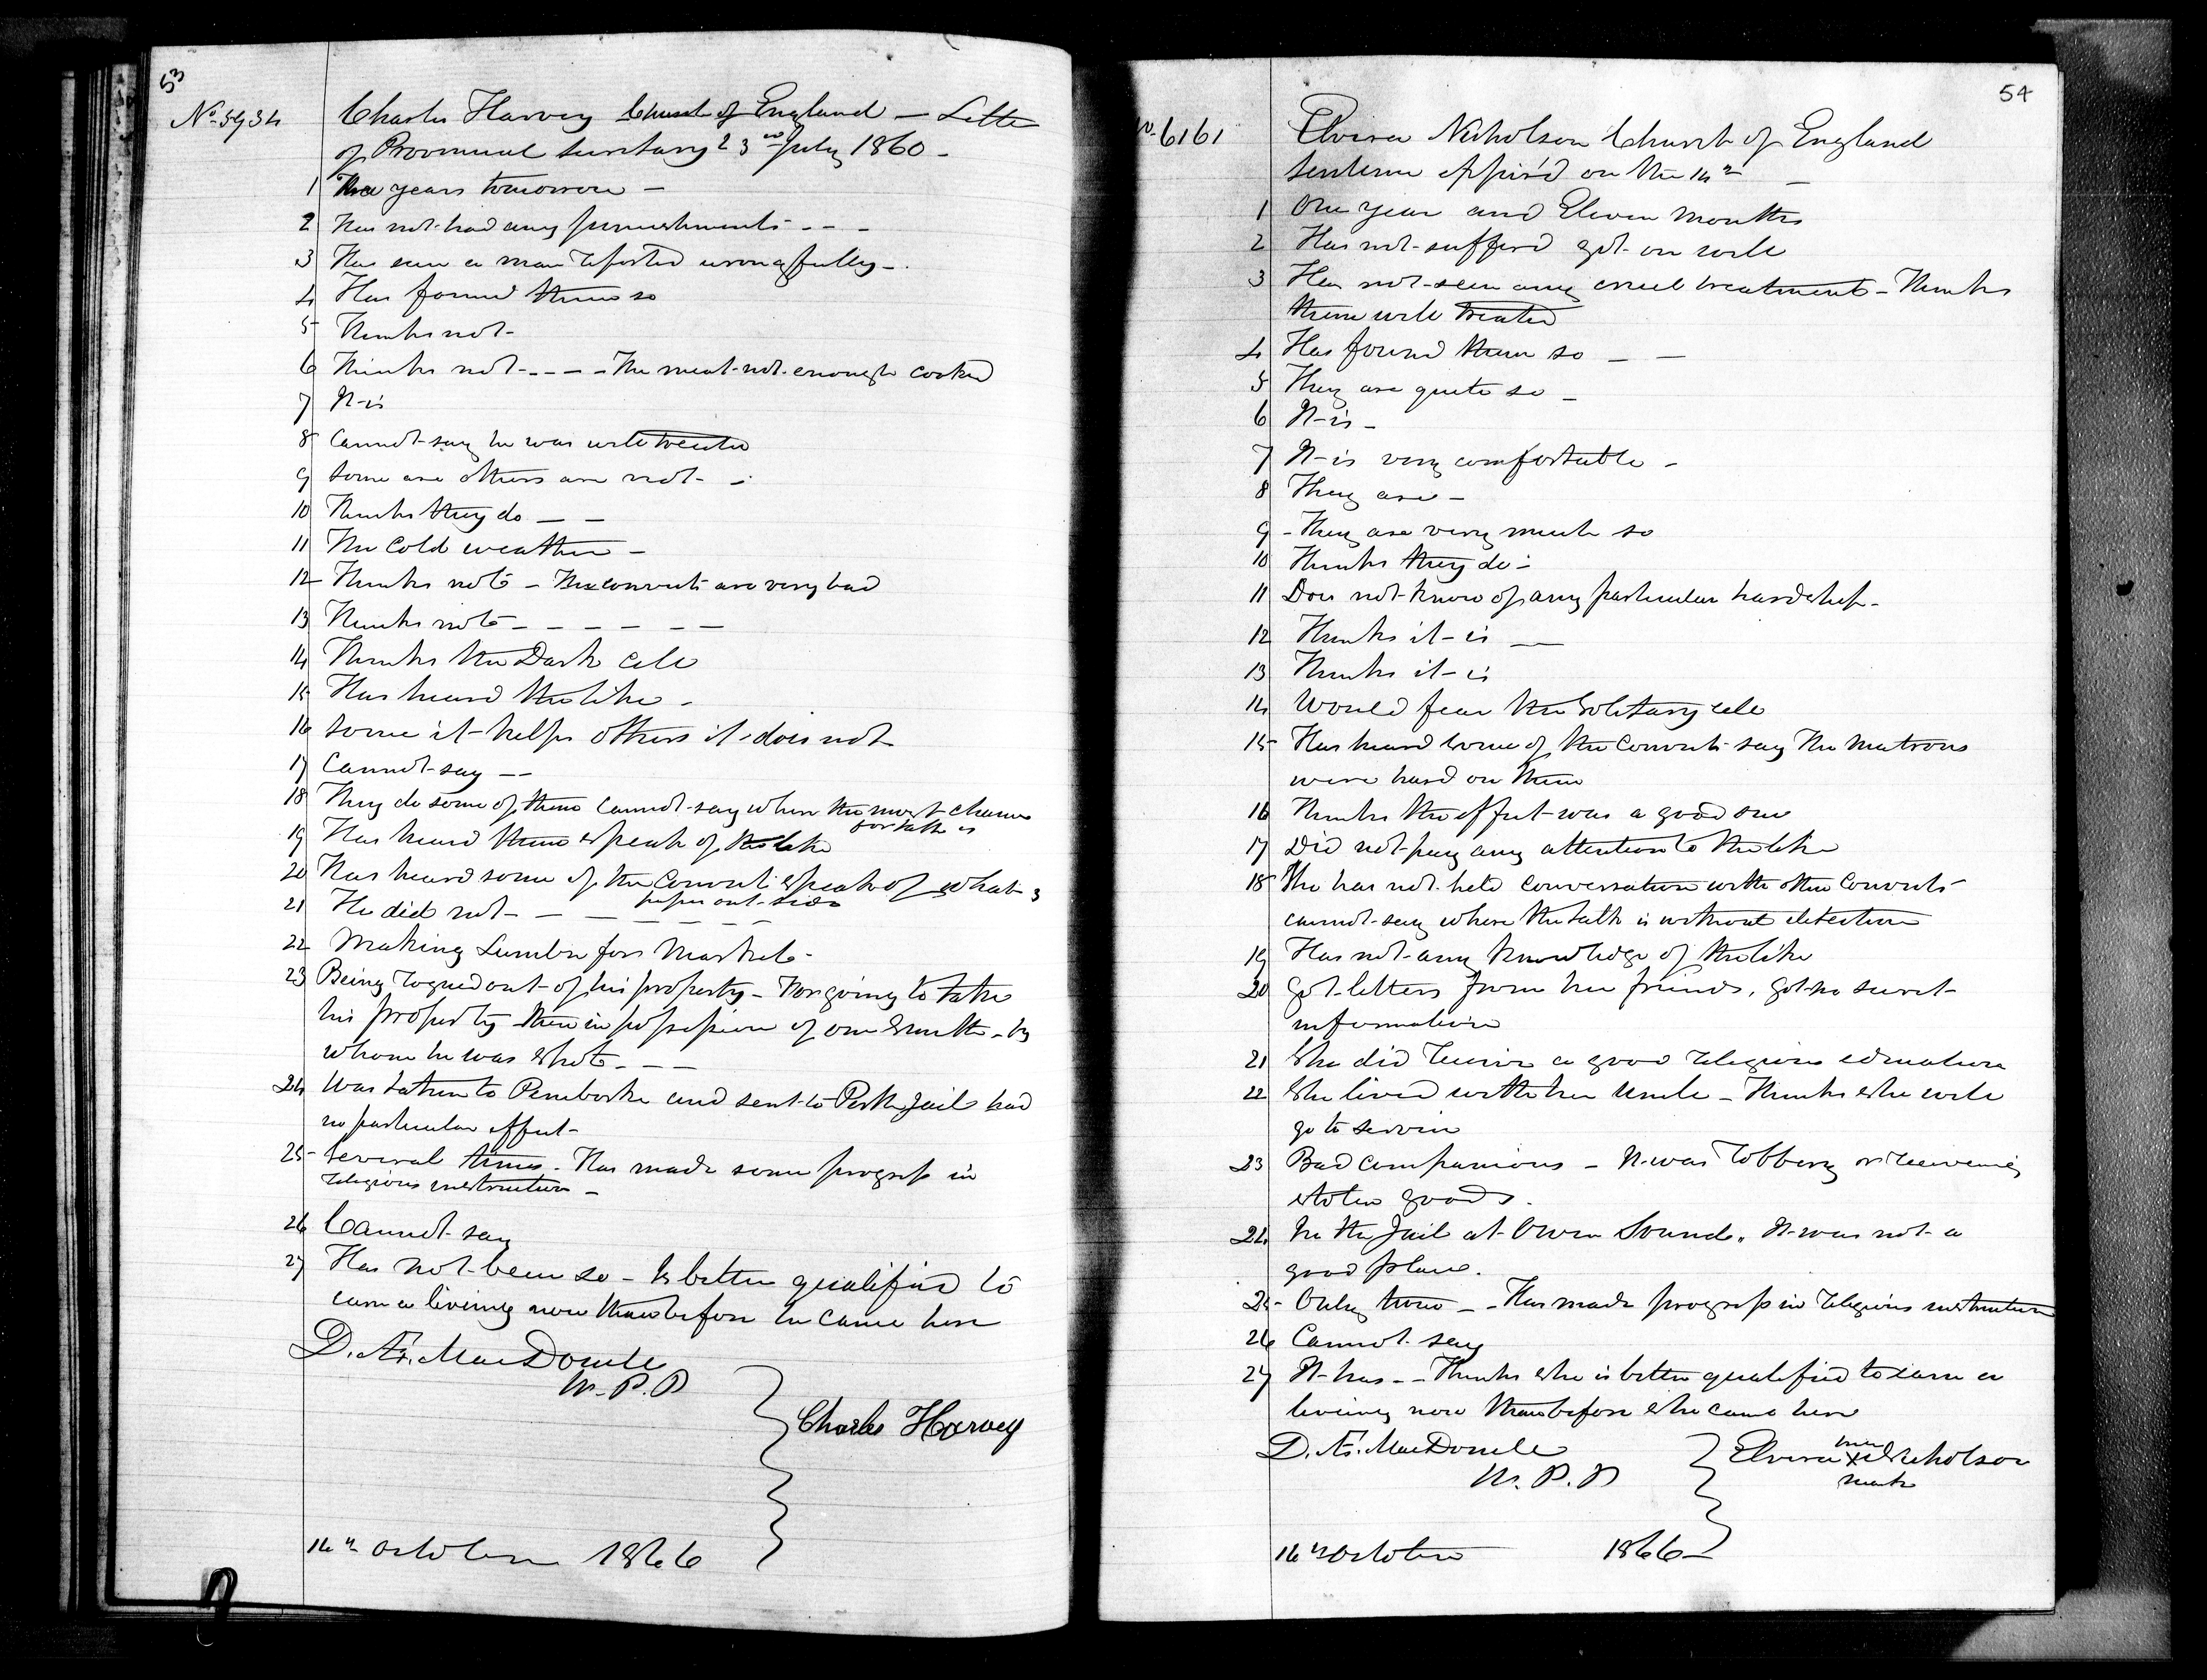 53
No. 5934 Charles Harvey Church of England — Letter
of Provincial Secretary 23rd July 1860 -
1 years tomorrow -
2 Has not had any punishments - - -
3 Has seen a man reported wrongfully -
4 Has found them so
5 Thinks not -
6 Thinks not - - - - The meat not enough cooked
7 It is
8 Cannot say he was well treated
9 Some are others are not -
10 Thinks they do — —
11 The Cold weather -
12 Thinks not - The convicts are very bad
13 Thinks not - - - - - -
14 Thinks the Dark Cell
15 Has heard the like -
16 Some it helps others it does not
17 Cannot say --
18 They do some of them cannot say where the most chance
for talk is
19 Has heard them speak of the like
20 Has heard some of the Convicts speak of what's
out side
21 He did not - - - - - -
22 Making Lumber for Market -
23 Being rogued out of his property - For going to take
his property then in possession of one Smith - by
whom he was shot - - -
24 Was taken to Pembroke and sent to Perth Jail had
no particular effect -
25 Several times - Has made some progress in
religious instruction -
26 Cannot say
27 Has not been so - Is better qualified to
earn a living now than before he came here
D. Æ. MacDonell
W. P. P
Charles Harvey
16th October 1866
54
No. 6161 Elvira Nicholson Church of England
Sentence Expir'd on the 14th -
1 One year and Eleven Months
2 Has not sufferd got on well
3 Has not seen any cruel treatment - Thinks
them well treated
4 Has found them so - -
5 They are quite so -
6 It is -
7 It is very comfortable -
8 They are -
9 - They are very much so
10 Thinks they do -
11 Does not know of any particular hardship -
12 Thinks it is —
13 Thinks it is
14 Would fear the Solitary cell
15 Has heard some of the Convicts say the Matrons
were hard on them
16 Thinks the effect was a good one
17 Did not pay any attention to the like
18 She has not held conversation with other Convicts
cannot say where the talk is without detection
19 Has not any knowledge of the like
20 Got letters from her friends, Got no secret
information
21 She did receive a good religious education
22 She lived with her Uncle - Thinks she will
go to service
23 Bad companions - It was robbery or receiveing
stolen goods.
24 In the Jail at Owen Sound. It was not a
good place.
25 - Only time - - Has made progress in religious instruction
26 Cannot say
27 It has - - Thinks she is better qualified to earn a
liveing now than before she came here
D. Æ. MacDonell
W. P. P
her
Elvira X Nicholson
mark
16th October 1866 -